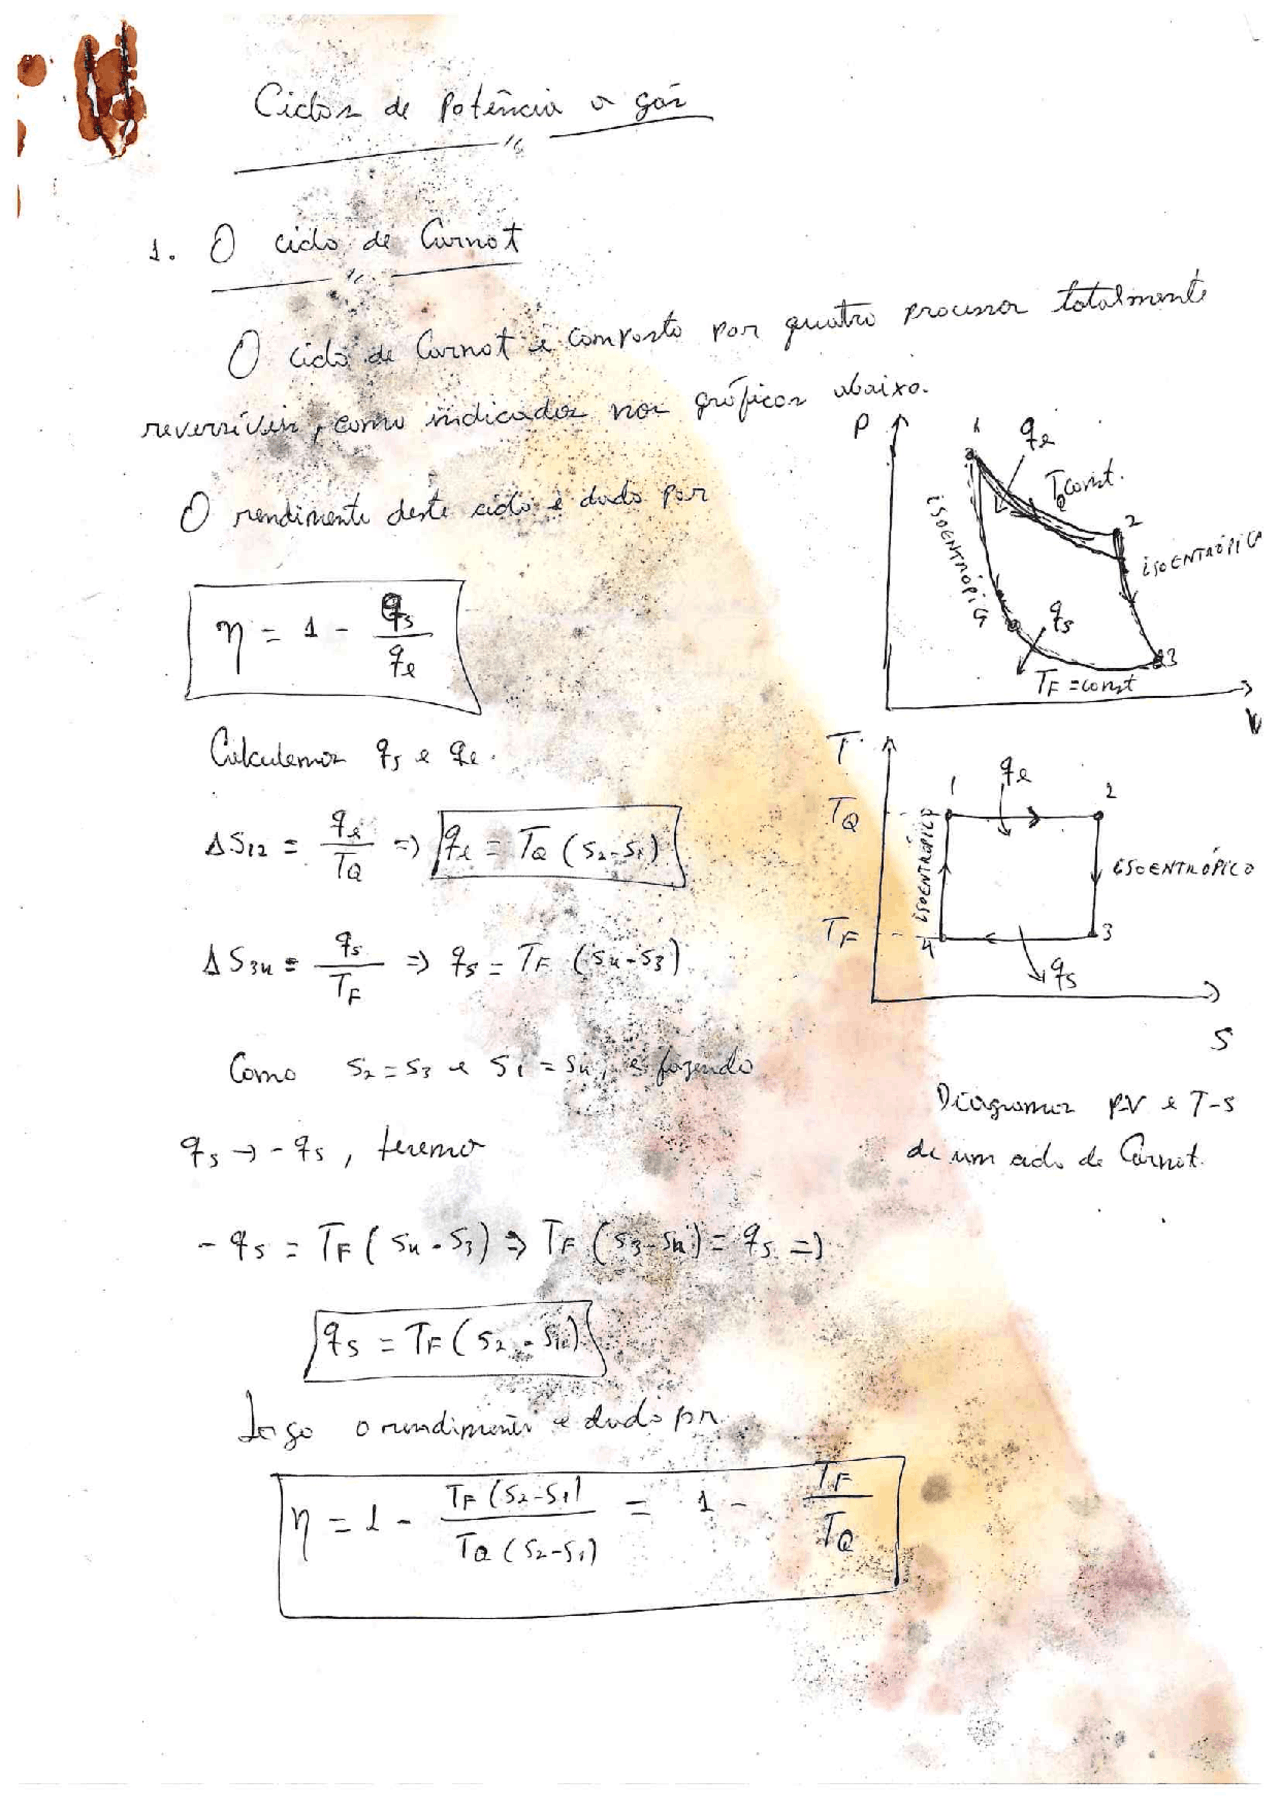 Ciclos de Potência a gás
1. O ciclo de Carnot
O ciclo de Carnot é composto por quatro processos totalmente
reversíveis, como indicados nos gráficos abaixo.
O rendimento deste ciclo é dado por
η = 1 - qs/qe
Calculemos qs e qe.
ΔS12 = qe/TQ => qe = TQ (S2-S1)
ΔS34 = qs/TF => qs = TF (S4-S3)
Como S2 = S3 e S1 = S4, e fazendo
qs → -qs, teremos
-qs = TF (S4 - S3) => TF (S3-S4) = qs =>
qs = TF (S2 - S1)
Logo o rendimento é dado por
η = 1 - TF (S2-S1)/TQ (S2-S1) = 1 - TF/TQ
P
1
qe
TQ const.
2
ISOENTRÓPICA
ISOENTRÓPICA
qs
3
TF = const
V
T
1
qe
2
TQ
ISOENTRÓPICO
ISOENTRÓPICO
TF
4
3
qs
S
Diagramas P-V e T-S
de um ciclo de Carnot.